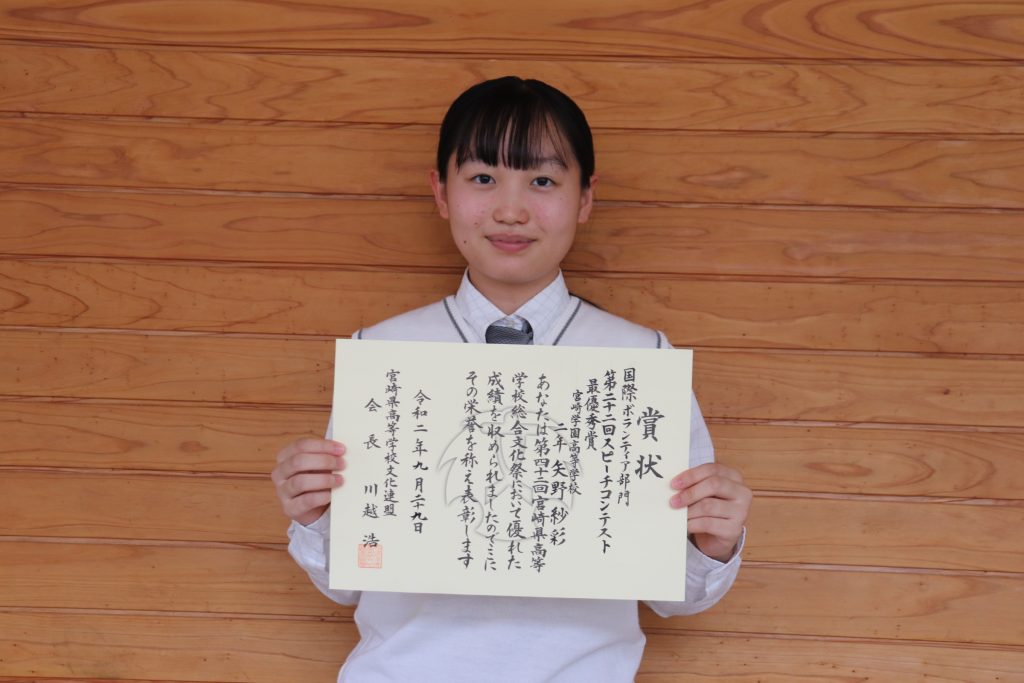 賞状
国際ボランティア部門
第二十二回スピーチコンテスト
最優秀賞
宮崎学園高等学校
二年 矢野紗彩
あなたは第四十二回宮崎県高等
学校総合文化祭において優れた
成績を収められましたのでここに
その栄誉を称え表彰します
令和二年九月二十九日
宮崎県高等学校文化連盟
会長 川越浩